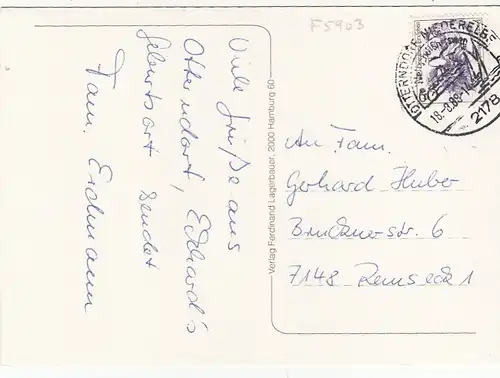 F5903
OTTERNDORF, NIEDERELBE
2178
Viele Grüße aus
Otterndorf, Eckhard's
Geburtsort sendet
Fam. Erdmann
Verlag Ferdinand Lagerbauer, 2000 Hamburg 60
An Fam.
Gerhard Huber
Brucknerstr. 6
7148 Remseck 1